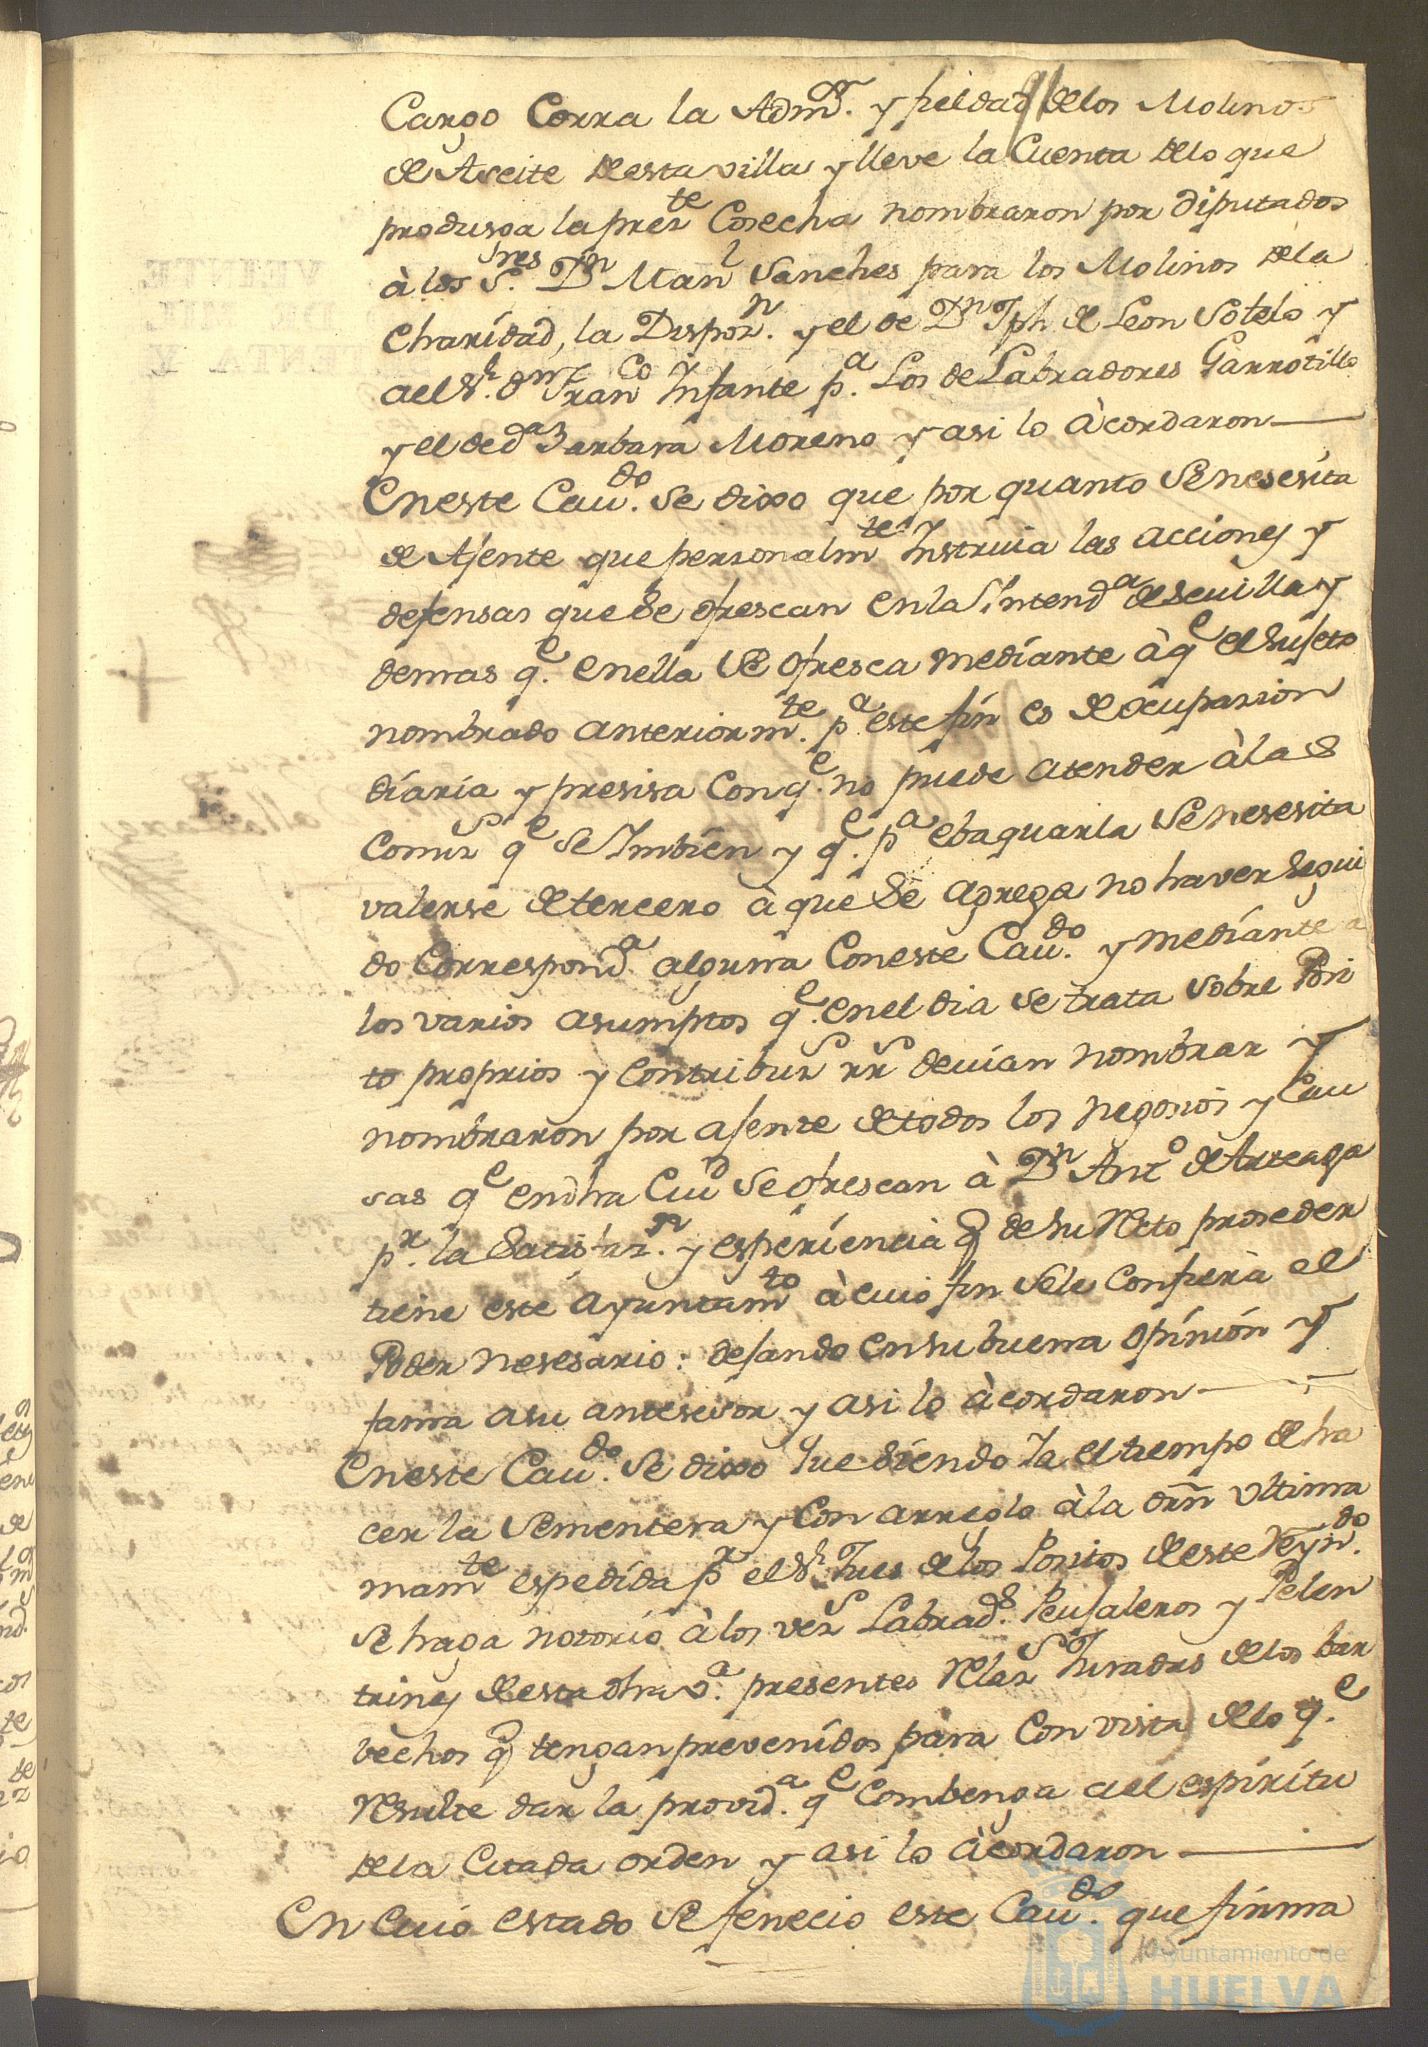 Cargo Corra la Admōn. y fieldad de los Molinos
de Aseite desta villa y lleve la Cuenta delo que
produsga la preste Cosecha nombraron por diputados
à los Sres. Dn Manl Sanches para los Molinos dela
Charidad, la Dispozn. y el de Dn Jph de Leon Sotelo y
a el Sr. dn Franco Infante pa. Los de Labradores Garrotillo
y el de da Barbara Moreno y asi lo àcordaron
En este Cavdo. se dixo que por quanto se nesesita
de Ajente que personalmte Instruia las acciones y
defensas que se ofrescan en la Intenda de Sevilla y
demas qe. en ella se ofresca mediante à qe el Sujeto
nombrado anteriormte. pa este fin es de ocupasion
diaria y presisa Con qe. no puede atender à las
Comizs qe se Imbien y qe. pa ebaquarla se nesesita
valerse de tercero à que se agrega no haver segui
do Corresponda alguna Con este Cavdo. y mediante a
los varios asumptos qe. en el dia se trata sobre Posi
to proprios y Contribuzs rrs devian nombrar y
nombraron por ajente de todos los negosios y Cau
sas qe en dha Ciud se ofrescan à Dn Anto de Arteaga
pr. la Satisfazn. y esperiencia q de su Recto proseder
tiene este Ayuntamto à cuio fin sele Confiera el
Poder nesesario: dejando en su buena opinion y
fama a su antesesor y asi lo àcordaron
En este Cavdo. se dixo que siendo Ya el tiempo de ha
cer la Sementera y Con arreglo à la orn ultima
mamte espedida pr el Sr. Jues de los Positos de este Reyndo.
se haga notorio à los vezs Labrads. Peujaleros y Pelen
trines de esta dha va. presentes Relazs Juradas de los bar
bechos q tengan prevenidos para Con vista delo qe.
Resulte dar la provida. qe Combenga a el espiritu
dela Citada orden y asi lo àcordaron
En cuio estado se fenecio este Cavdo. que firma
Ayuntamiento de
HUELVA